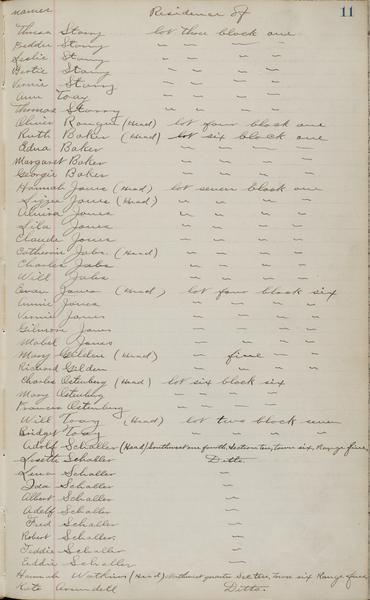 names Residence of 11
Thresa Storry lot three block one
Beddie Storry " " " "
Leslie Storry " " " "
Bertie Storry " " " "
Vernie Storry " " " "
Ann Toay " " " "
Thomas Storry " " " "
Oliver (Head) lot four block one
Ruth Baker (Head) lot six block one
Edna Baker " " " "
Margaret Baker " " " "
Georgie Baker " " " "
Hannah Jones (Head) lot seven block one
Lizzie Jones (Head) " " " "
Alvira Jones " " " "
Lila Jones " " " "
Claude Jones " " " "
Catherine Jabs (Head) " " " "
Charles Jabs " " " "
Will Jabs " " " "
Evan Jones (Head) lot four block six
Annie Jones " " " "
Vernie Jones " " " "
Gilmore Jones " " " "
Mabel Jones " " " "
Mary Gilden (Head) " five " "
Richard Gilden " " " "
Charles Ostenburg (Head) lot six block six
Mary Ostenburg " " " "
Frances Ostenburg " " " "
Will Toay (Head) lot two block seven
Bridget Toay " " " "
Adolf Schaller (Head) Southwest one fourth, Section ten, town six, Range five,
Lisette Schaller Ditto.
Lena Schaller "
Ida Schaller "
Albert Schaller "
Adolf Schaller "
Fred Schaller "
Robert Schaller. "
Teddie Schaller "
Eddie Schaller "
Hannah Watkins (Head) Northwest quarter Sec ten, town six Range five,
Kate Ditto.